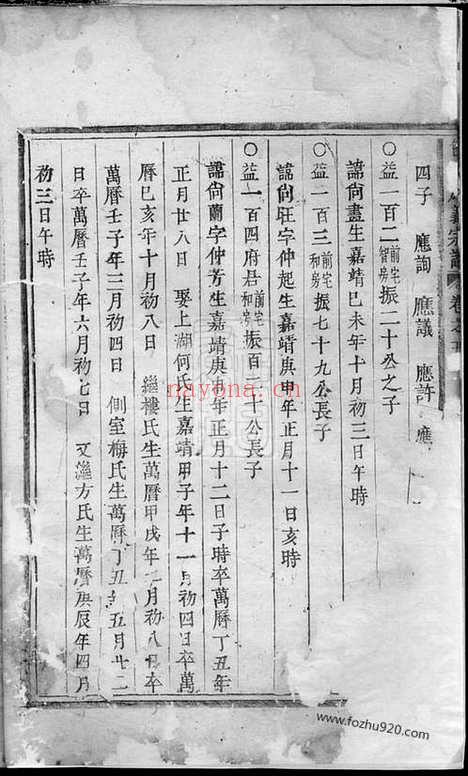 宗譜 卷之
四子 應詢 應議 應許 應
○益一百二前宅智房振二十公之子
諱尙晝生嘉靖己未年十月初三日午時
○益一百三前宅和房振七十九公長子
諱尙班字仲起生嘉靖庚申年正月十一日亥時
○益一百四府君前宅和房振百 十公長子
諱尙蘭字仲芳生嘉靖庚 年正月十二日子時卒萬曆丁丑年
正月廿八日 娶上湖何氏生嘉靖甲子年十一月初四日卒萬
曆己亥年十月初八日 繼樓氏生萬曆甲戌年 月初八日卒
萬曆壬子年三月初四日 側室梅氏生萬曆丁丑年五月廿二
日卒萬曆壬子年六月初七日 又 方氏生萬曆庚辰年四月
初三日午時
nayona.cn
www.fozhu920.com